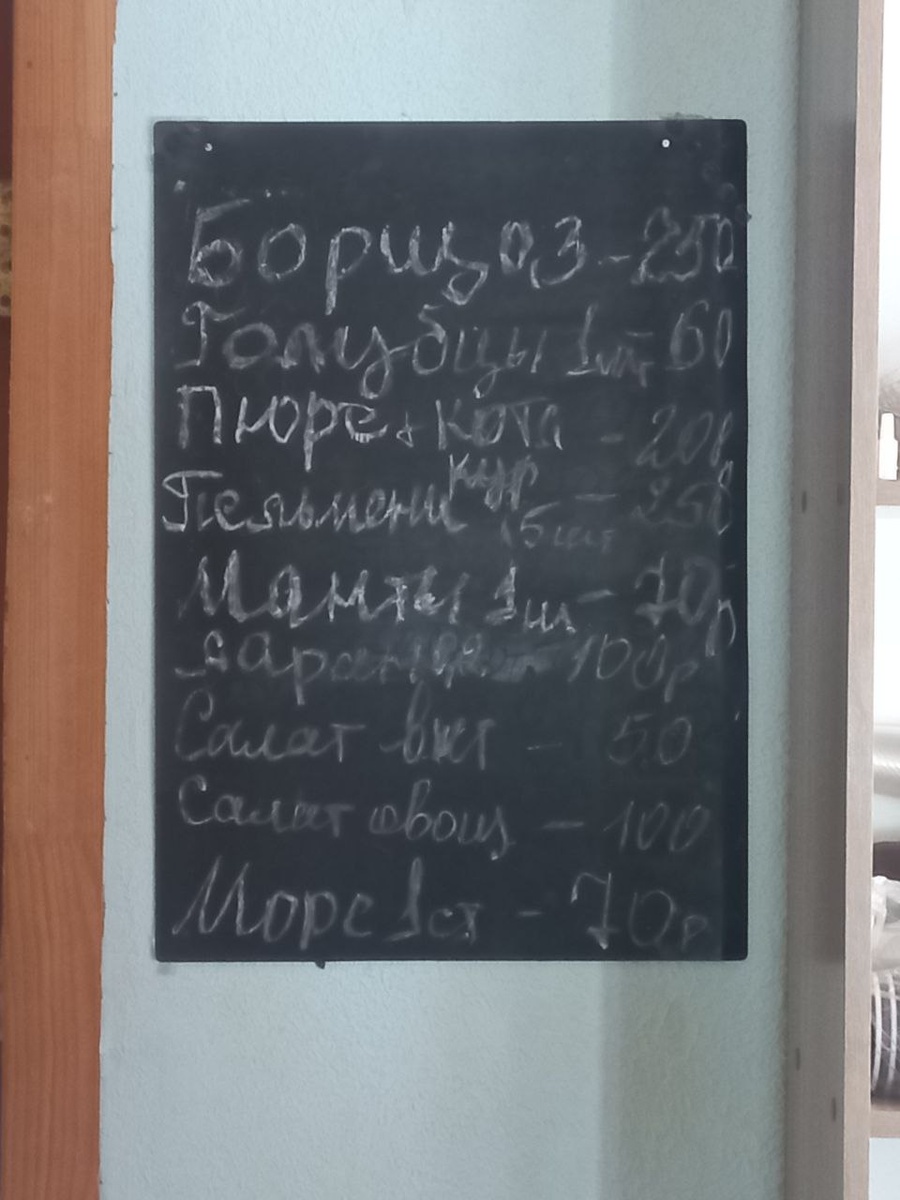 Борщ 03 - 250
Голубцы 1шт 60
Пюре + кота - 200
кур
Пельмени - 250
15 шт
Манты 1ш - 70р
100р
Салат вит - 50
Салат овощ - 100
Морс 1ст - 70р